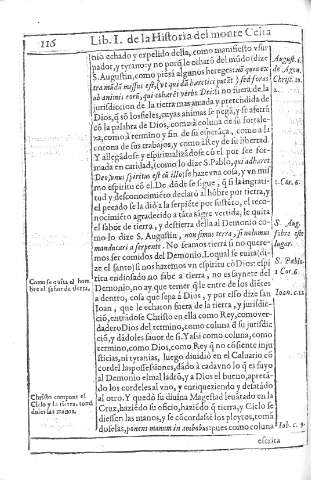 116
Lib. I. de la Historia del monte Celia
nio echado y expelido della, como manifiesto vsur
pador, y tyrano: y no para q̃ le echarõ del mũdo (dize
S. Augustin, como pẽsarõ algunos hereges)
sed foras
ab animis eorũ, qui verbo Dei: si no fuera de la
jurisdiccion de la tierra mas amada y pretendida de
Dios, q̃ sõ los fieles, cuyas animas se prẽdẽ, y se afixan
cõ la palabra de Dios, como a coluna de su fortale-
za, como a termino y fin de su esperãça, como a la
corona de sus trabajos, y como a Rey de su libertad.
Y allegãdose y espiritualizãdose cõ el por fee for-
mada en caridad, (como lo dize S. Pablo, qui adhæret
Deo, vnus spiritus est cũ illo) se haze vna cosa, y vn mis
mo espiritu cõ el. De dõde se sigue, q̃ si la ingrati-
tud y desconocimiẽto declarò al hõbre por tierra, y
el pecado se la diò a la serpiẽte por sustẽto, el reco-
nocimiẽto agradecido a tãta sãgre vertida, le quita
el sabor de tierra, y destierra della al Demonio: co-
mo lo dize S. Augustin, non simus terra, si nolumus
manducari a serpente. No seamos tierra si no quere-
mos ser comidos del Demonio. Lo qual se euita (di-
ze el santo) si nos hazemos vn espiritu cõ Dios: espi
ritu endiosado no sabe a tierra, no es jaynete del
Demonio, no ay que temer q̃ le entre de los diẽtes
a dentro, cosa que sepa a Dios, y por esso dize san
Ioan, que le echaron fuera de la tierra, y jurisdi-
ciõ, entrãdose Christo en ella como Rey, como ver-
dadero Dios del termino, como coluna d̃ su jurisdi-
ciõ, y dãdoles sauor de si. Y assi como coluna, como
termino, como Dios, como Rey q̃ no cõsiente inju-
sticias, ni tyranias, luego diuidiò en el Caluario cõ
cordel las possessiones, dãdo à cada vno lo q̃ es suyo
al Demonio el mal ladrõ, y a Dios el bueno, apretã-
do los cordeles al vno, y enriqueziendo y desatãdo
al otro. Y quedò su diuina Magestad leuantado en la
Cruz, haziẽdo su oficio, haziẽdo q̃ tierra, y Cielo se
diessen las manos, y se cõcordassen sus pleytos, tomã
doselas, ponens manum in ambobus: pues como coluna
escrita
August. li.
de Agon.
Christ. 10.
1. Cor. 6.
S. Aug.
sobre este
lugar.
S. Pablo
1. Cor. 6.
Ioan. c. 12
Iob. c. 9.
Como se euita al hom
bre el sabor de tierra.
Christo compone el
Cielo y la tierra, tomã
doles las manos.